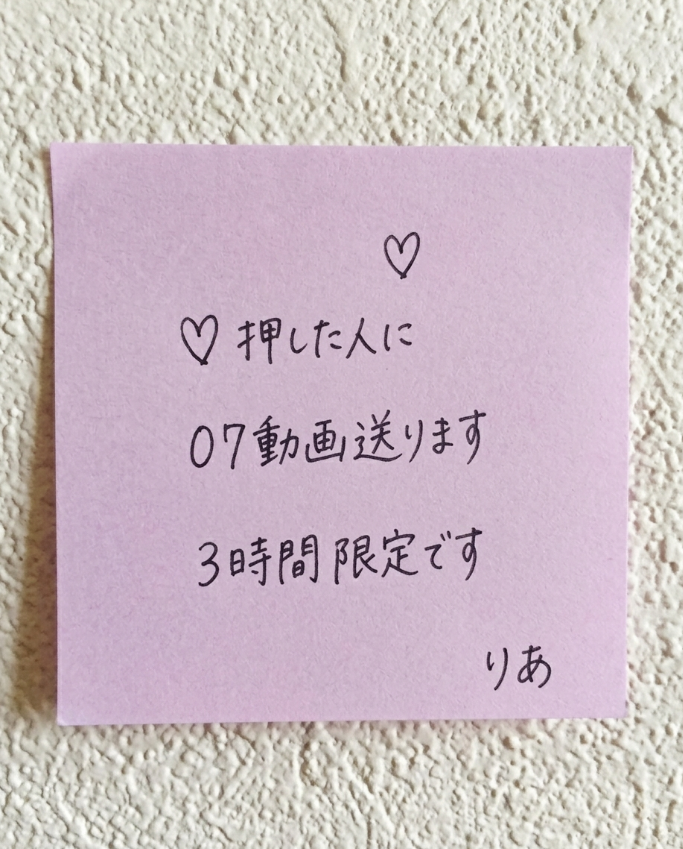 ♡
♡押した人に
07動画送ります
3時間限定です
りあ